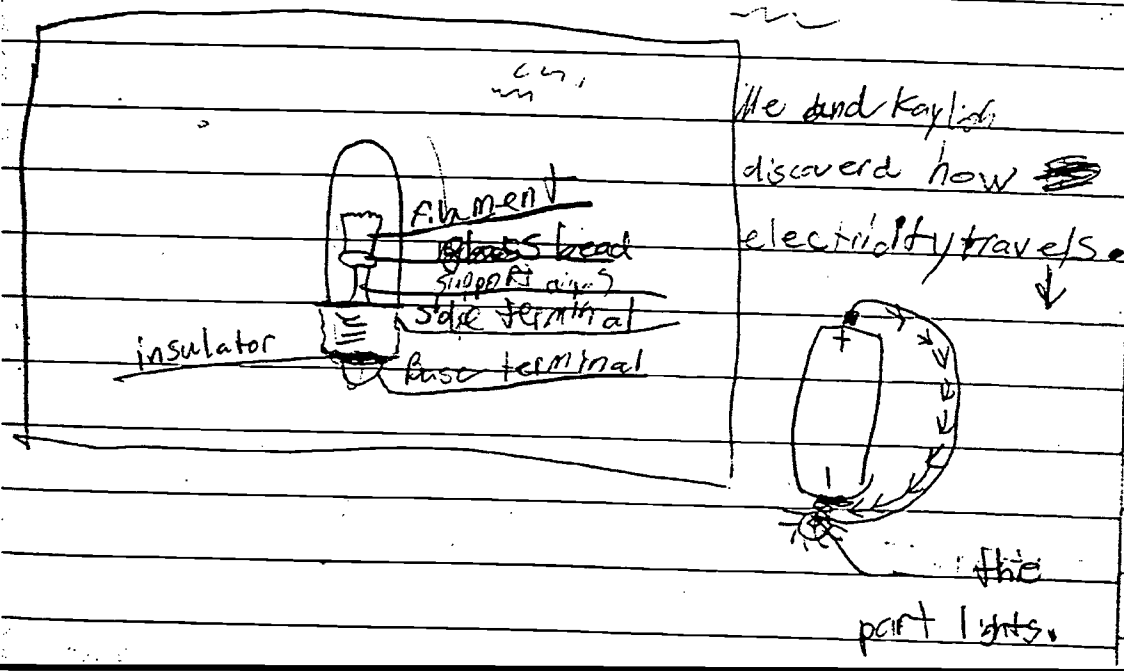 filament
glass bead
support wires
side terminal
insulator
Base terminal
Me and Kayliah
discoverd how
electricity travels.
+
-
the
part lights.